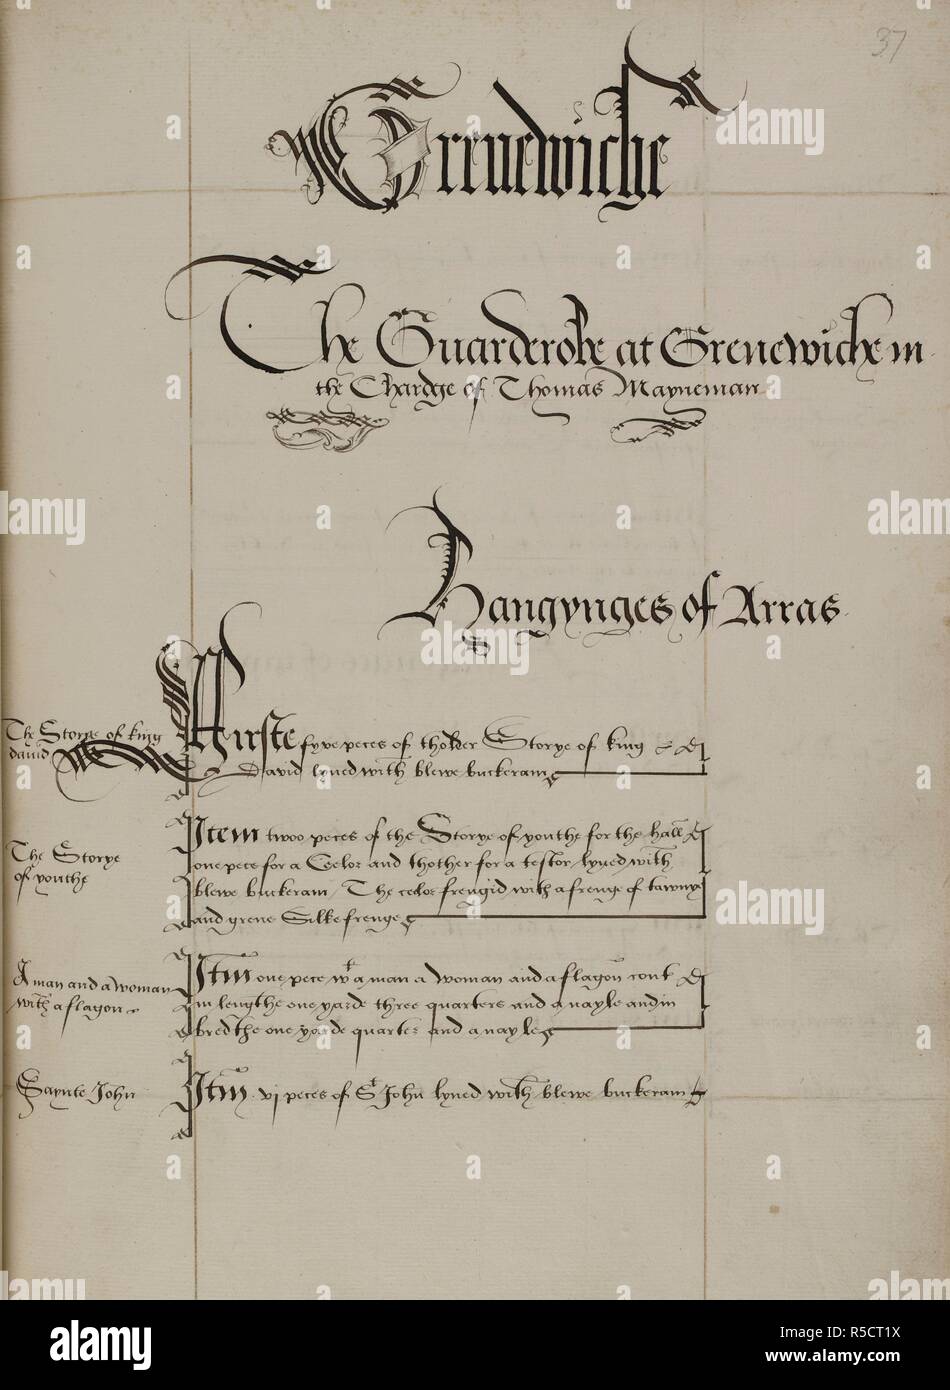 37
Grenewiche
The Guarderobe at Grenewiche in
the Chardge of Thomas Mayneman
Hangynges of Arras
The Storye of king
david
Firste fyve peces of tholder Storye of king
David lyned with blewe buckeram
The Storye
of youthe
Item twoo peces of the Storye of youthe for the hall
one pece for a Celor and thother for a testor lyned with
blewe buckeram The celor frengid with a frenge of tawny
and grene Silke frenge
A man and a woman
with a flagon
Itm one pece wt a man a woman and a flagon cont
in lengthe one yarde three quarters and a nayle and in
bredthe one yarde quarter and a nayle
Saynte John
Itm vj peces of St John lyned with blewe buckeram
alamy
Image ID: R5CT1X
www.alamy.com